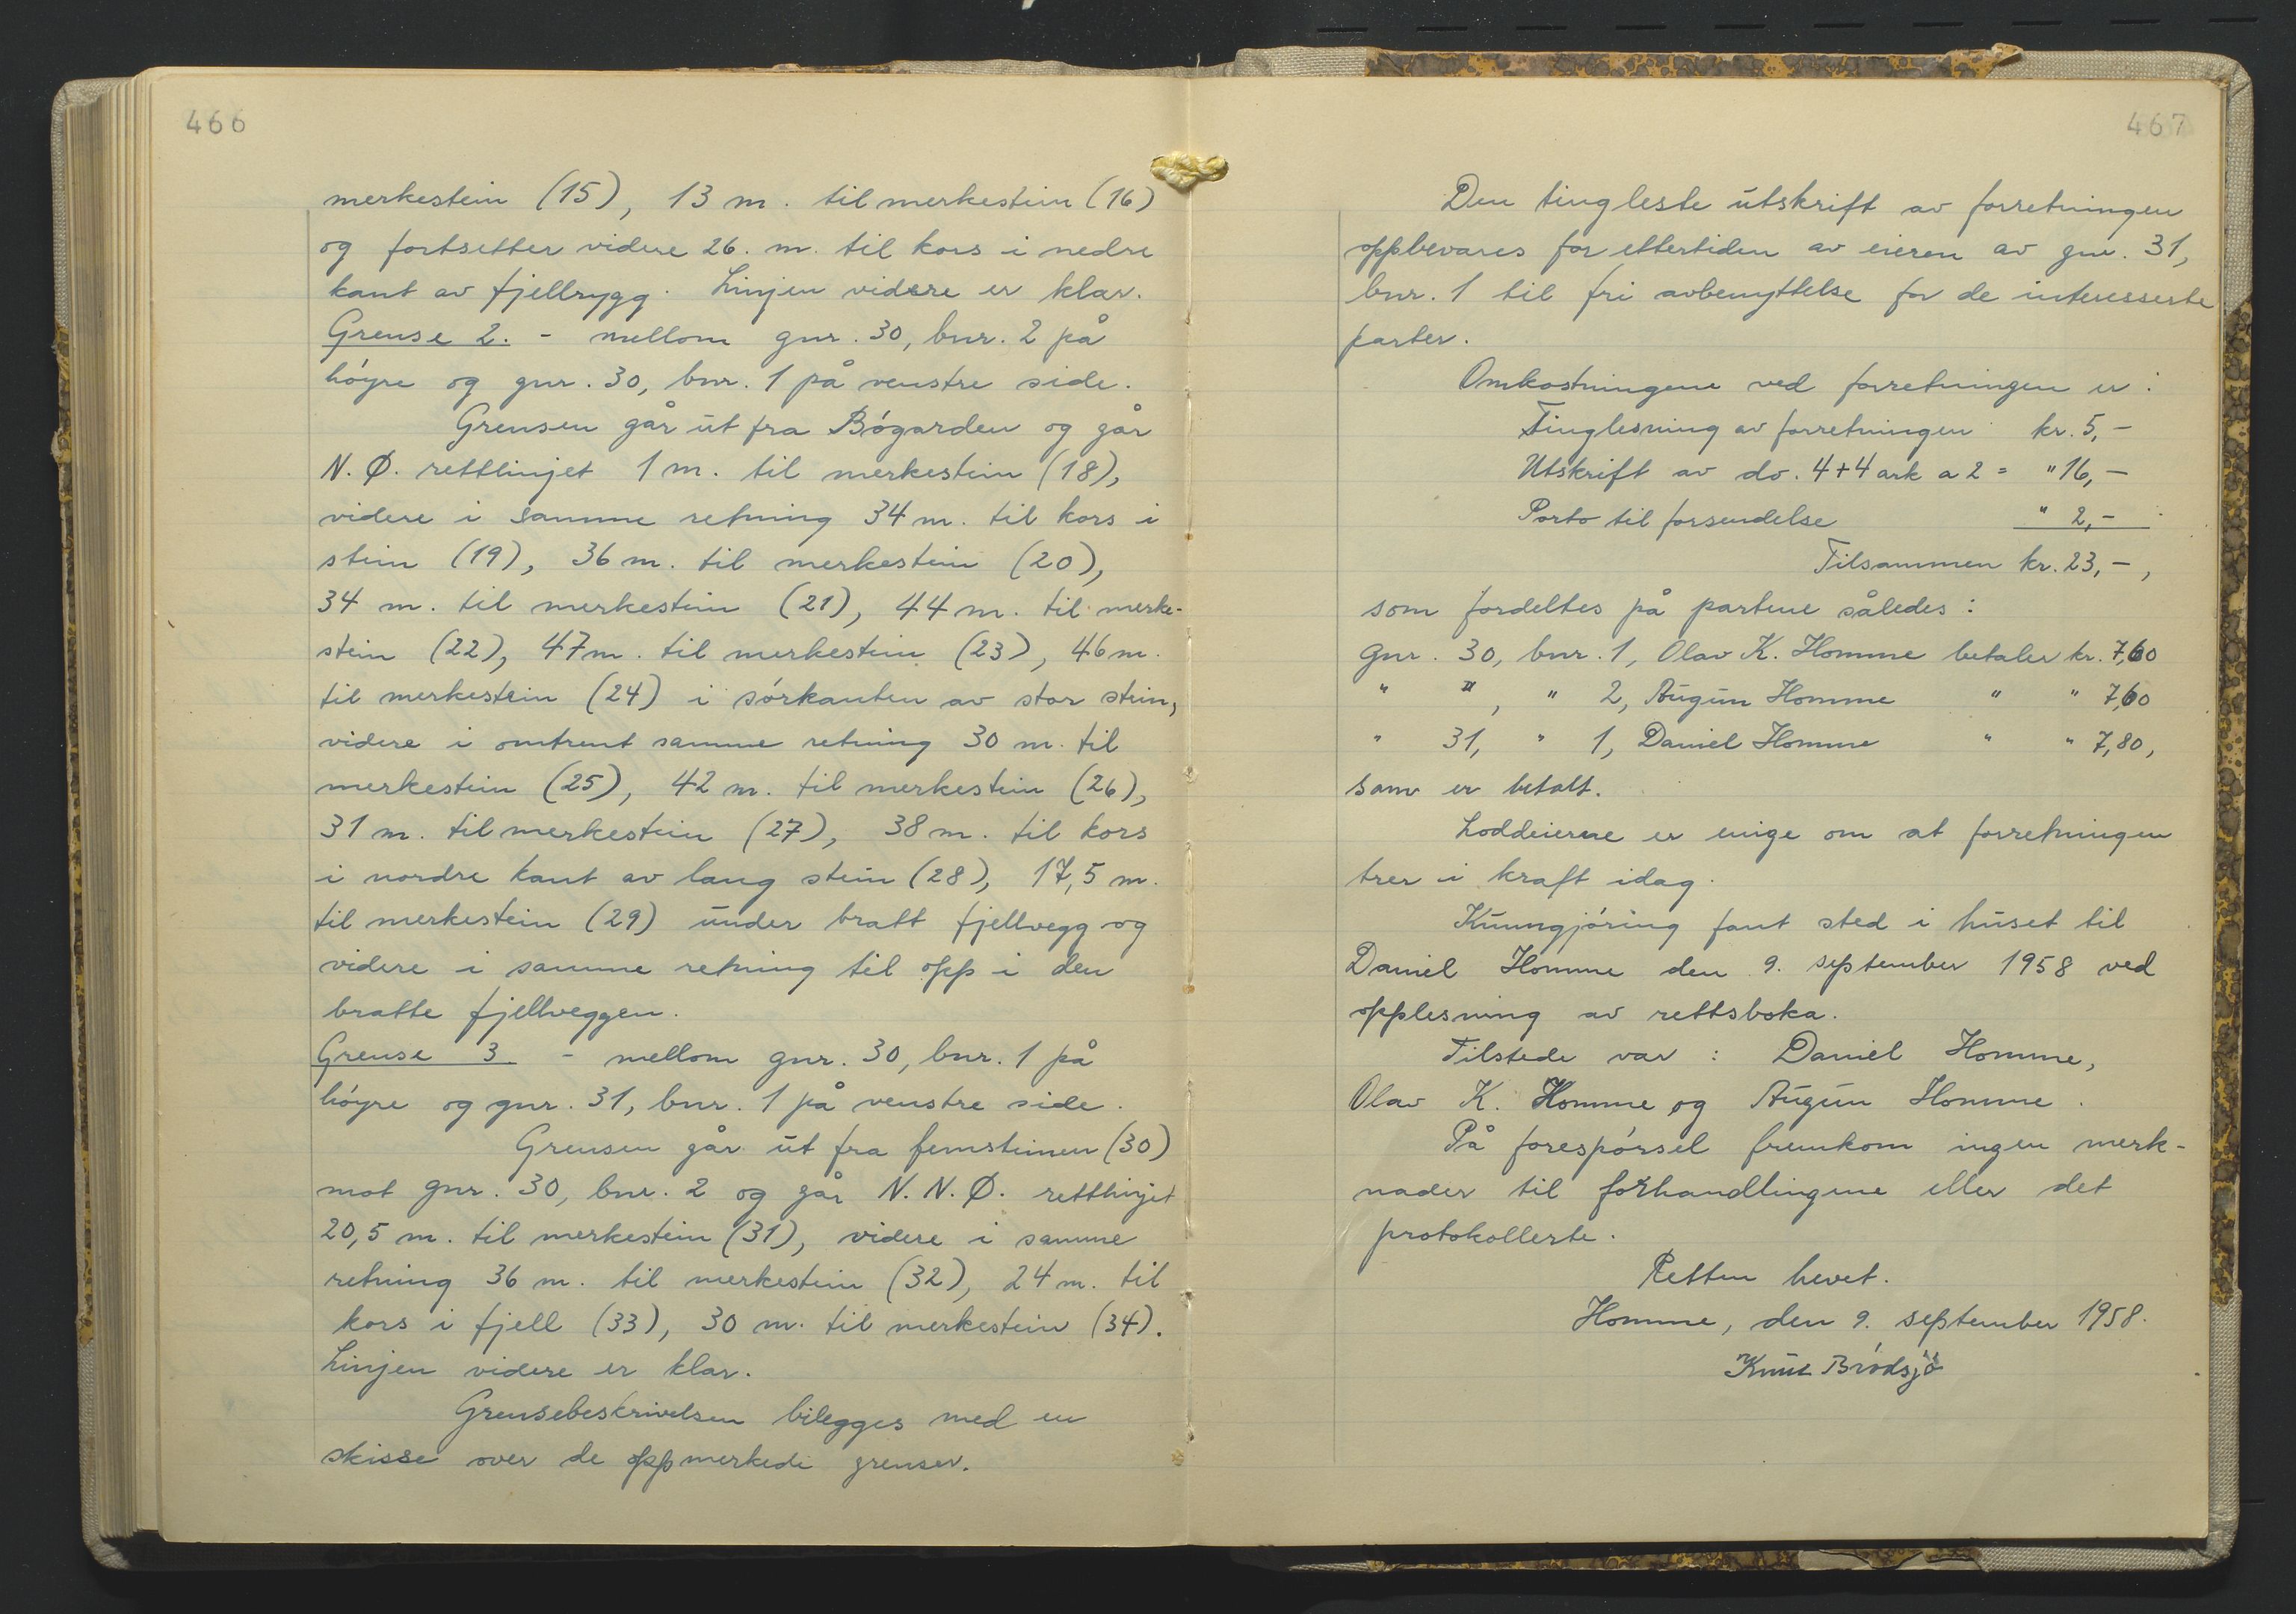 466
merkestein (15), 13 m. til merkestein (16)
og fortsetter videre 26. m. til kors i nedre
kant av fjellrygg. Linjen videre er klar.
Grense 2. - mellom gnr. 30, bnr. 2 på
høyre og gnr. 30, bnr. 1 på venstre side.
Grensen går ut fra Bøgarden og går
N.Ø. rettlinjet 1 m. til merkestein (18),
videre i samme retning 34 m. til kors i
stein (19), 36 m. til merkestein (20),
34 m. til merkestein (21), 44 m. til merke-
stein (22), 47 m. til merkestein (23), 46 m.
til merkestein (24) i sørkanten av stor stein,
videre i omtrent samme retning 30 m. til
merkestein (25), 42 m. til merkestein (26),
31 m. til merkestein (27), 38 m. til kors
i nordre kant av lang stein (28), 17,5 m.
til merkestein (29) under bratt fjellvegg og
videre i samme retning til opp i den
bratte fjellveggen.
Grense 3 - mellom gnr. 30, bnr. 1 på
høyre og gnr. 31, bnr. 1 på venstre side.
Grensen går ut fra femsteinen (30)
mot gnr. 30, bnr. 2 og går N.N.Ø. rettlinjet
20,5 m. til merkestein (31), videre i samme
retning 36 m. til merkestein (32), 24 m. til
kors i fjell (33), 30 m. til merkestein (34).
Linjen videre er klar.
Grensebeskrivelsen bilegges med en
skisse over de oppmerkede grenser.
467
Den tingleste utskrift av forretningen
oppbevares for ettertiden av eieren av gnr. 31,
bnr. 1 til fri avbenyttelse for de interesserte
parter.
Omkostningene ved forretningen er:
Tinglesning av forretningen kr. 5,-
Utskrift av do. 4+4 ark a 2 = " 16,-
Porto til forsendelse " 2,-
Tilsammen kr. 23,-,
som fordeltes på partene således:
Gnr. 30, bnr. 1, Olav K. Homme betaler kr. 7,60
" ", " 2, Augun Homme " " 7,60
" 31, " 1, Daniel Homme " " 7,80,
som er betalt.
Loddeierene er enige om at forretningen
trer i kraft idag.
Kunngjøring fant sted i huset til
Daniel Homme den 9. september 1958 ved
opplesning av rettsboka.
Tilstede var: Daniel Homme,
Olav K. Homme og Augun Homme.
På forespørsel fremkom ingen merk-
nader til forhandlingene eller det
protokollerte.
Retten hevet.
Homme, den 9. september 1958.
Knut Brødsjø